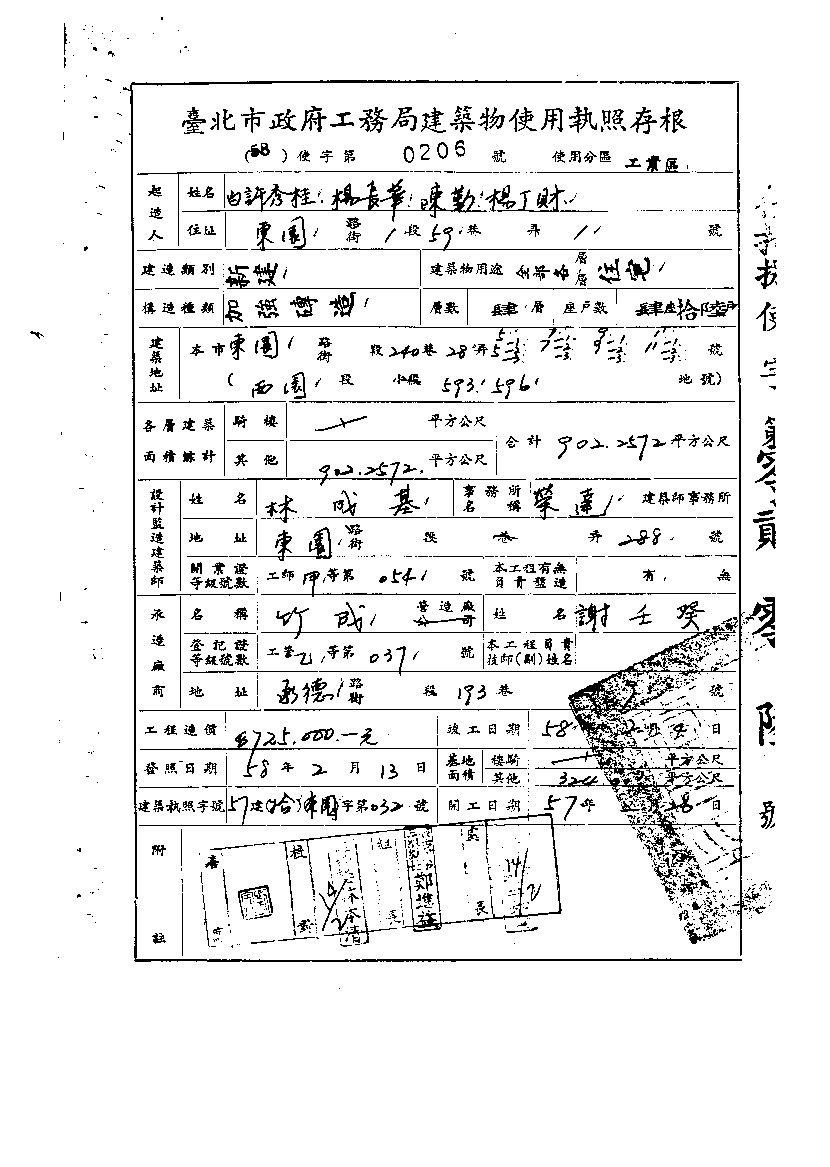 臺北市政府工務局建築物使用執照存根
(58)使字第 0206 號 使用分區 工業區
起造人 姓名 白許秀桂 楊長華 陳勤 楊丁財
住址 東園 路街 1段59巷 弄 1 號
建造類別 新建 建築物用途 全部各層層住宅
構造種類 加強磚造 層數 肆層 座戶數 肆座拾陸戶
建築地址 本市東園 路街 段240巷28弄 號
(西園 段 小段 593 596 地號)
各層建築面積總計 騎樓 平方公尺 合計 902.2572 平方公尺
其他 902.2572 平方公尺
設計監造建築師 姓名 林成基 事務所名稱 榮達 建築師事務所
地址 東園 路街 段 巷 弄 288 號
開業證等級號數 工師甲等第 0541 號 本工程有無負責監造 有 無
承造廠商 名稱 竹成 營造廠公司 姓名 謝壬癸
登記證等級號數 工營乙等第 0371 號 本工程負責技師(副)姓名
地址 承德 路街 段 193 巷 號
工程造價 $725.000.-元 竣工日期 58 日
發照日期 58年2月13日 基地面積 騎樓 平方公尺
其他 324 平方公尺
建築執照字號 57建(拾)東園字第032號 開工日期 57年 月28日
附註
使字第零貳零陸號